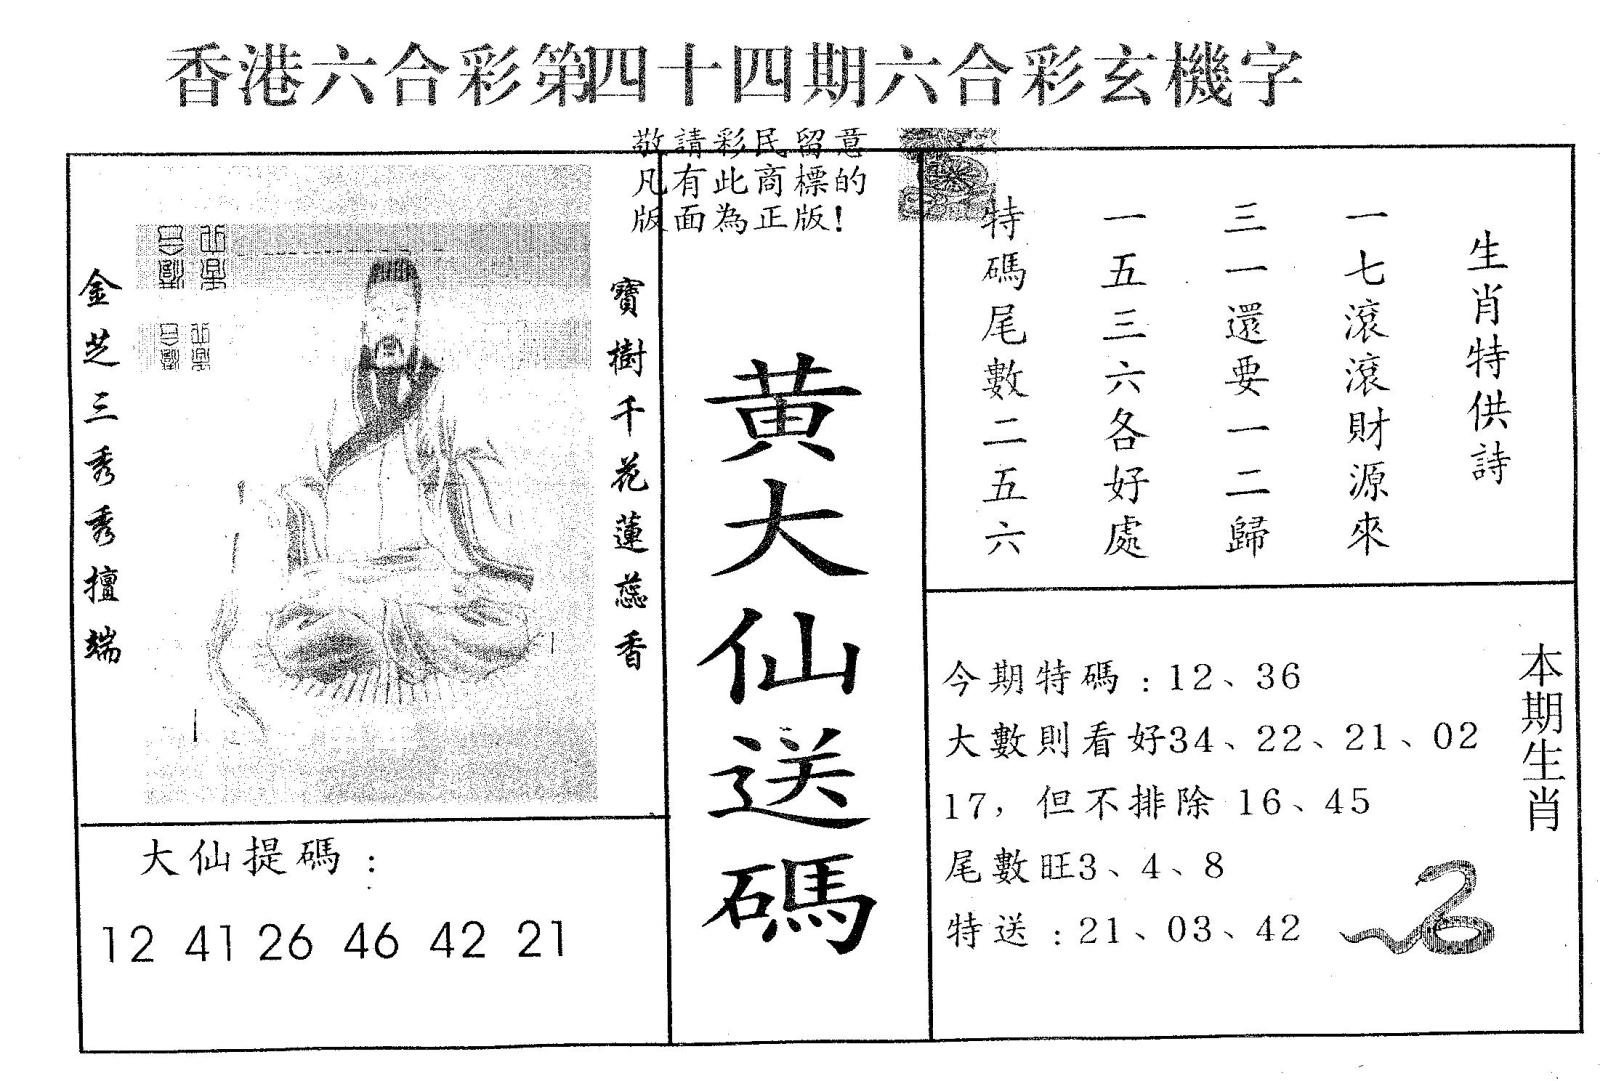 香港六合彩第四十四期六合彩玄機字
敬請彩民留意
凡有此商標的
版面為正版!
寶樹千花蓮蕊香
金芝三秀秀擅端
大仙提碼:
12 41 26 46 42 21
黄大仙送碼
生肖特供詩
一七滾滾財源來
三一還要一二歸
一五三六各好處
特碼尾數二五六
本期生肖
今期特碼:12、36
大數則看好34、22、21、02
17,但不排除 16、45
尾數旺3、4、8
特送:21、03、42